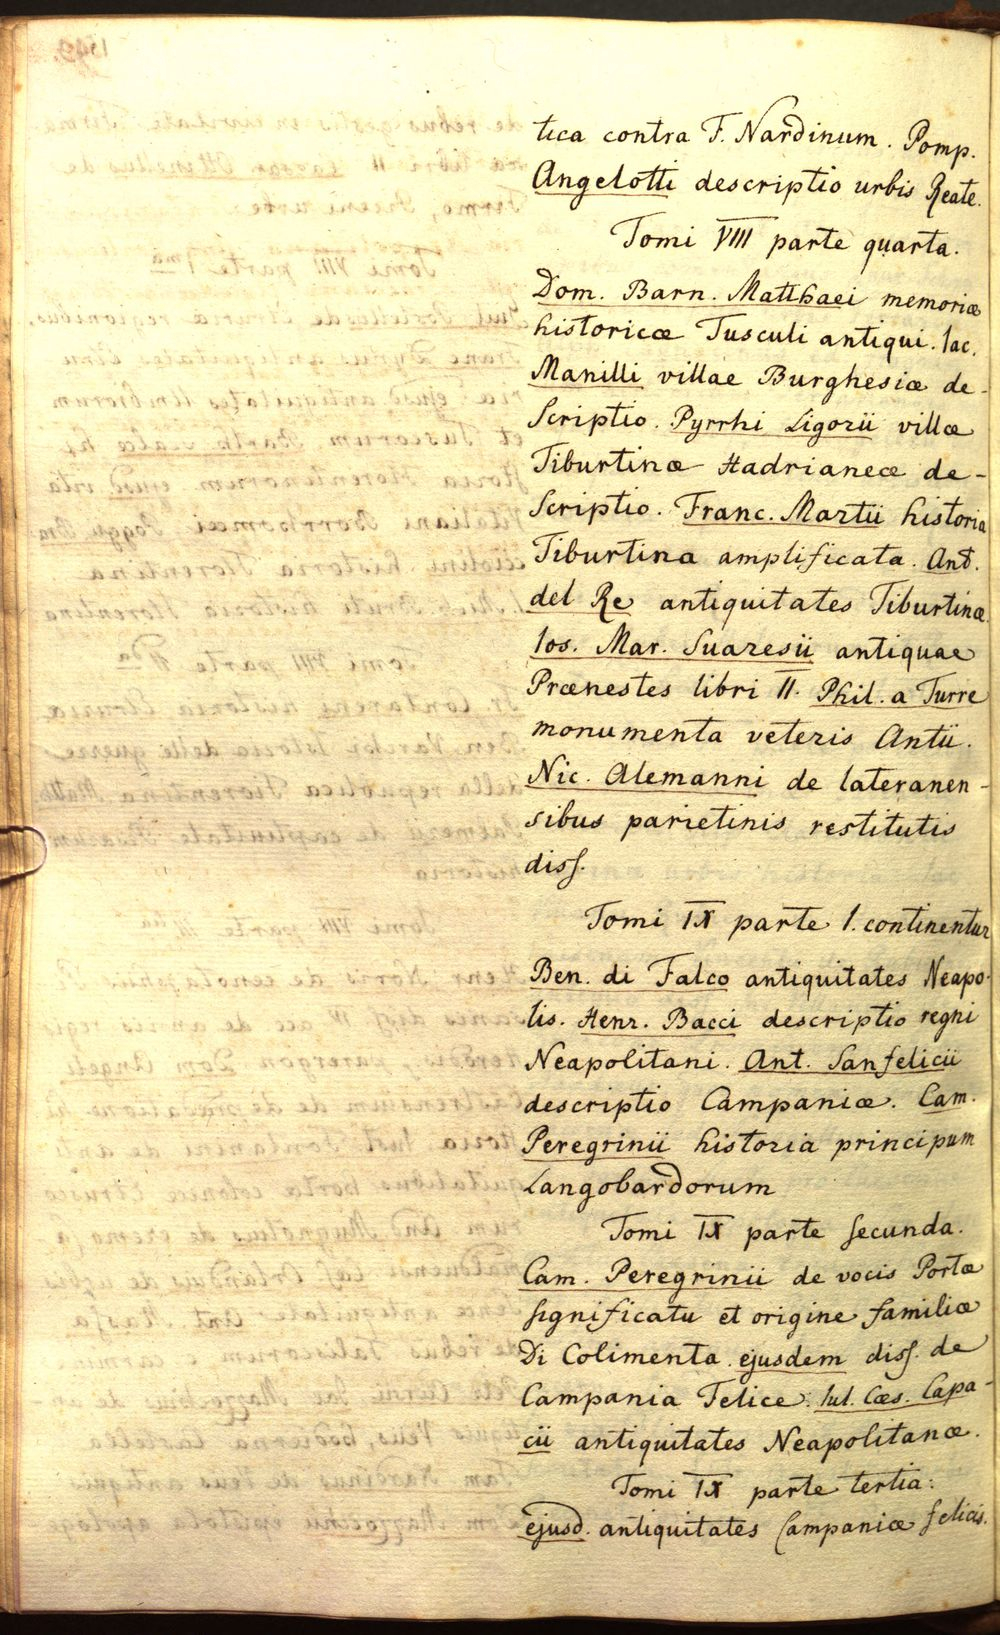 tica contra F. Nardinum. Pomp.
Angelotti descriptio urbis Reate.
Tomi VIII parte quarta.
Dom. Barn. Matthaei memoriæ
historicæ Tusculi antiqui. Iac.
Manilli villae Burghesiæ de-
scriptio. Pyrrhi Ligorii villæ
Tiburtinæ Hadrianeæ de-
scriptio. Franc. Martii historia
Tiburtina amplificata. Ant.
del Re antiquitates Tiburtinæ.
Ios. Mar. Suaresii antiquae
Prænestes libri II. Phil. a Turre
monumenta veteris Antii.
Nic. Alemanni de lateranen-
sibus parietinis restitutis
diss.
Tomi IX parte I. continentur
Ben. di Falco antiquitates Neapo-
lis. Henr. Bacci descriptio regni
Neapolitani. Ant. Sanfelicii
descriptio Campaniæ. Cam.
Peregrinii historia principum
Langobardorum
Tomi IX parte secunda.
Cam. Peregrinii de vocis Portæ
significatu et origine familiæ
Di Colimenta. ejusdem diss. de
Campania Felice. Iul. Cæs. Capa-
cii antiquitates Neapolitanæ.
Tomi IX parte tertia:
ejusd. antiquitates Campaniæ felicis.